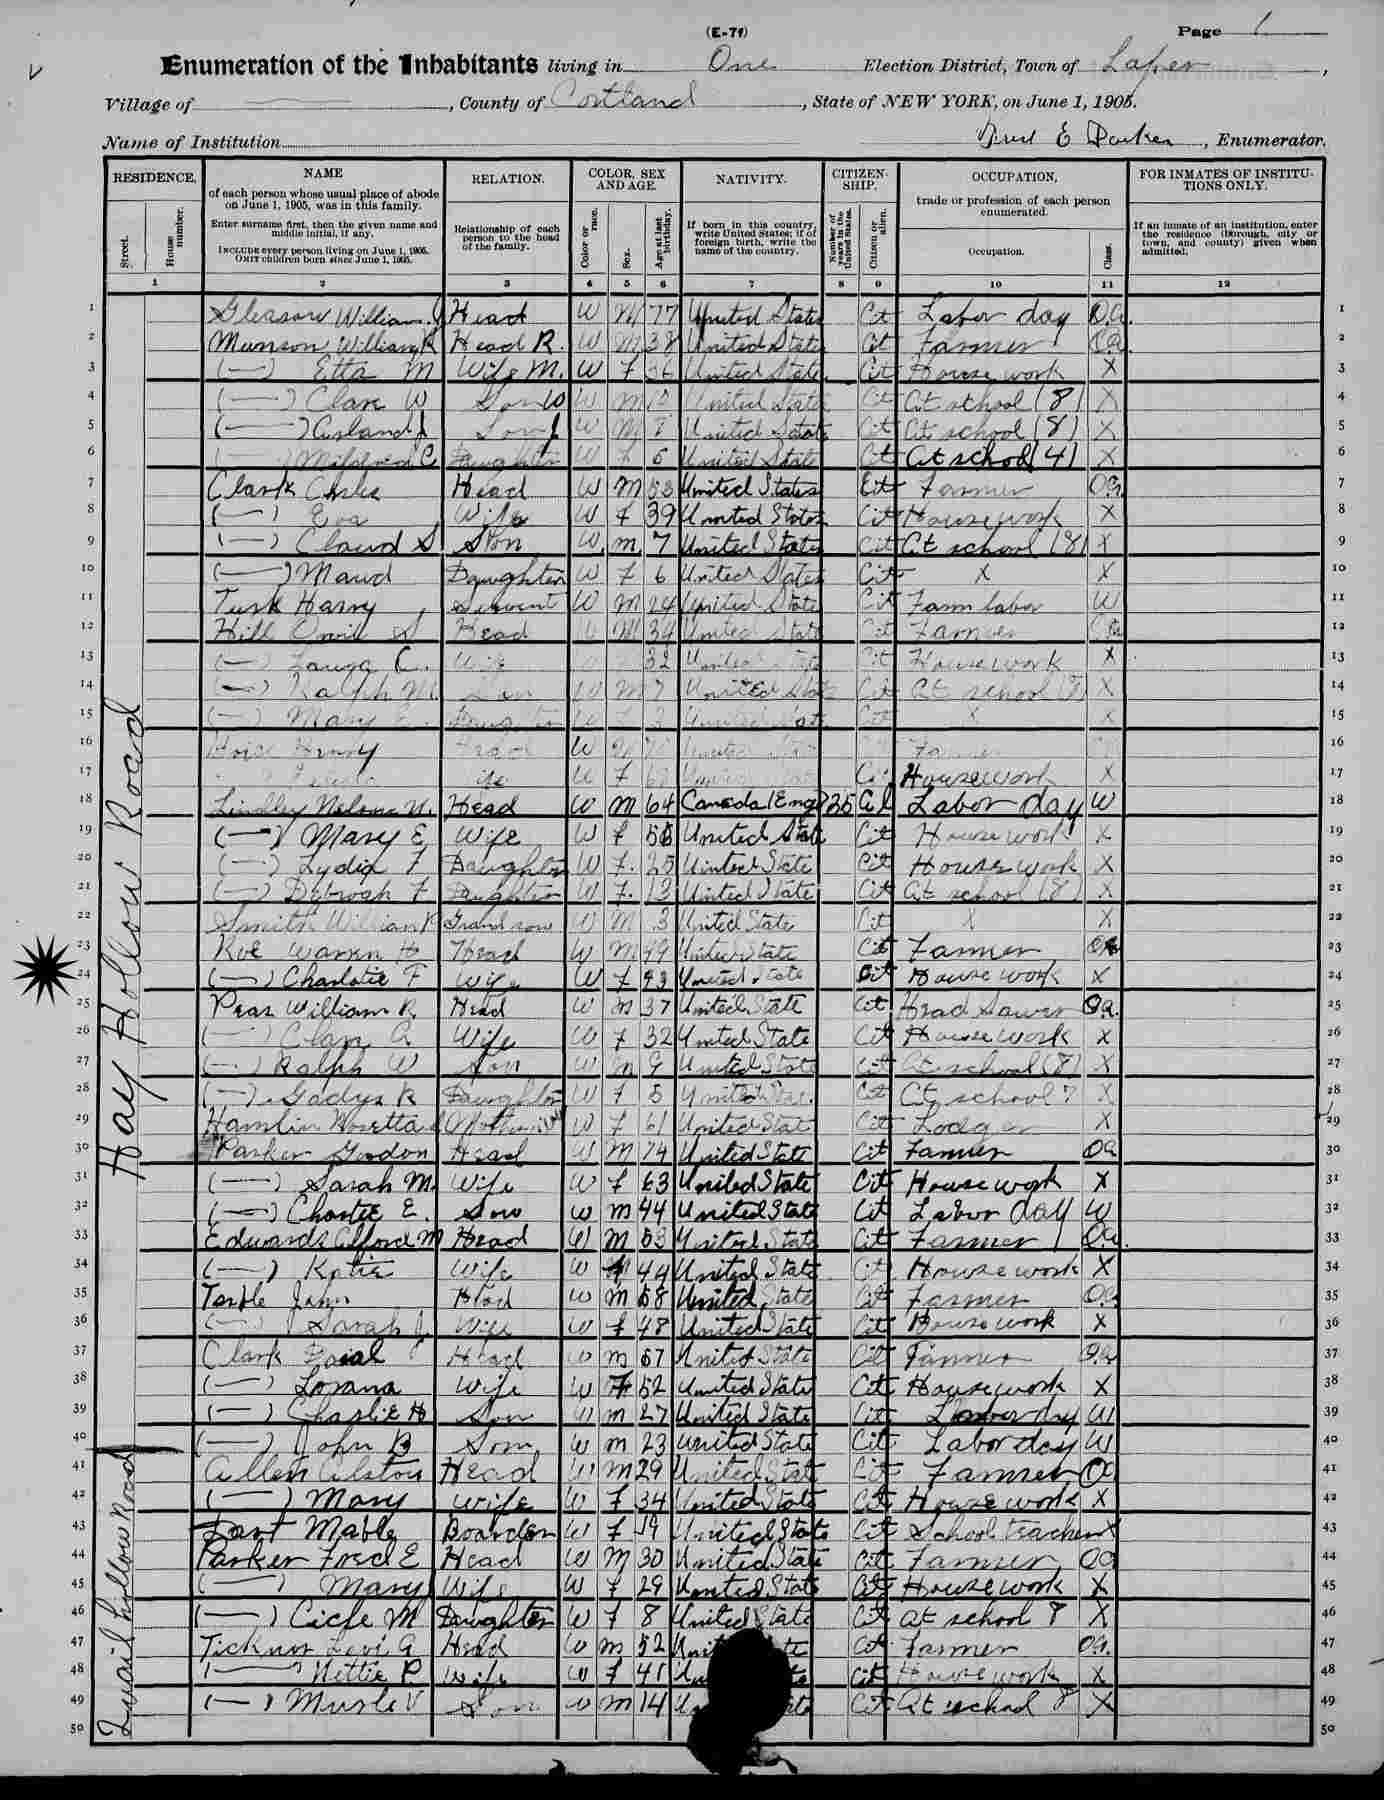 (E-71)
Page 1
Enumeration of the Inhabitants living in One Election District, Town of Laper,
Village of , County of Cortland, State of NEW YORK, on June 1, 1905.
Name of Institution Fred E Parker, Enumerator.
RESIDENCE. NAME RELATION. COLOR, SEX AND AGE. NATIVITY. CITIZEN-SHIP. OCCUPATION, FOR INMATES OF INSTITU-TIONS ONLY.
Street. House number.
of each person whose usual place of abode on June 1, 1905, was in this family.
Enter surname first, then the given name and middle initial, if any.
INCLUDE every person living on June 1, 1905. OMIT children born since June 1, 1905.
Relationship of each person to the head of the family.
Color or race. Sex. Age at last birthday.
If born in this country, write United States; if of foreign birth, write the name of the country.
Number of years in the United States. Citizen or alien.
trade or profession of each person enumerated.
Occupation. Class.
If an inmate of an institution, enter the residence (borough, city or town, and county) given when admitted.
1 2 3 4 5 6 7 8 9 10 11 12
Hay Hollow Road
1 Gleason William J Head W M 77 United States Cit Labor day O.A. 1
2 Munson William R Head R. W M 38 United States Cit Farmer O.A. 2
3 (—) Etta M Wife M. W F 36 United State Cit House work X 3
4 (—) Clare W Son W W M United State Cit At school (8) X 4
5 (—) J Son J W M 8 United State Cit At school (8) X 5
6 (—) Mildred C Daughter W F 5 United State Cit At school (4) X 6
7 Clark Head W M 53 United States Cit Farmer O.A. 7
8 (—) Eva Wife W F 39 United States Cit House work X 8
9 (—) Claud S Son W M 7 United State Cit At school (8) X 9
10 (—) Maud Daughter W F 6 United States Cit X X 10
11 Tusk Harry Servent W M 24 United State Cit Farm labor W 11
12 Hill S Head W M 34 United State Cit Farmer 12
13 (—) C. Wife 32 United State Cit House work X 13
14 (—) Ralph M. Son W M 7 United State Cit At school X 14
15 (—) Mary E. Daughter W F 3 United State Cit X X 15
16 Henry Head W M United State Farmer 16
17 Wife W F United State Cit Housework X 17
18 Lindley Nelson N. Head W M 64 Canada (Eng) 35 Al Labor day W 18
19 (—) Mary E Wife W F 56 United State Cit House work X 19
20 (—) Lydia F Daughter W F. 25 United State Cit House work X 20
21 (—) Debroah F Daughter W F. 13 United State Cit At school (8) X 21
22 Smith William P Grand son W M 3 United State Cit X X 22
23 Roe Warren H Head W M 49 United State Cit Farmer OA 23
24 (—) Charlotie F Wife W F 43 United State Cit House work X 24
25 Peas William R Head W M 37 United State Cit Head Sawer O.A. 25
26 (—) Clara A Wife W F 32 United State Cit House work X 26
27 (—) Ralph W Son W M 9 United State Cit At school (8) X 27
28 (—) Gladys R Daughter W F 5 United State. Cit At school 7 X 28
29 Hamlin Rosetta Mother in law W F 61 United State Cit Lodger X 29
30 Parker Gordon Head W M 74 United State Cit Farmer OA 30
31 (—) Sarah M. Wife W F 63 United State Cit House work X 31
32 (—) E. Son W M 44 United State Cit Labor day W 32
33 Edwards M Head W M 53 United State Cit Farmer O.A. 33
34 (—) Katie Wife W 44 United State Cit House work X 34
35 John Head W M 58 United State Cit Farmer O.A. 35
36 (—) Sarah J Wife W F 48 United State Cit House work X 36
37 Clark Head W M 57 United State Cit Farmer O.A. 37
38 (—) Lorana Wife W F 52 United State Cit House work X 38
39 (—) Charlie H Son W M 27 United State Cit Labor day W 39
40 (—) John B Son W M 23 United State Cit Labor day W 40
Quail hollow Road
41 Allen Alston Head W M 29 United State Cit Farmer OA 41
42 (—) Mary Wife W F 34 United State Cit House work X 42
43 Dart Mable Boarder W F 19 United State Cit School teacher X 43
44 Parker Fred E Head W M 30 United State Cit Farmer OA 44
45 (—) Mary Wife W F 29 United State Cit House work X 45
46 (—) Cicle M Daughter W F 8 United State Cit At school 8 X 46
47 Ticknor Levi A Head W M 52 United State Cit Farmer O.A. 47
48 (—) Nettie P. Wife W F 41 Cit House work X 48
49 (—) Murle V Son W M 14 Cit At school 8 X 49
50 50